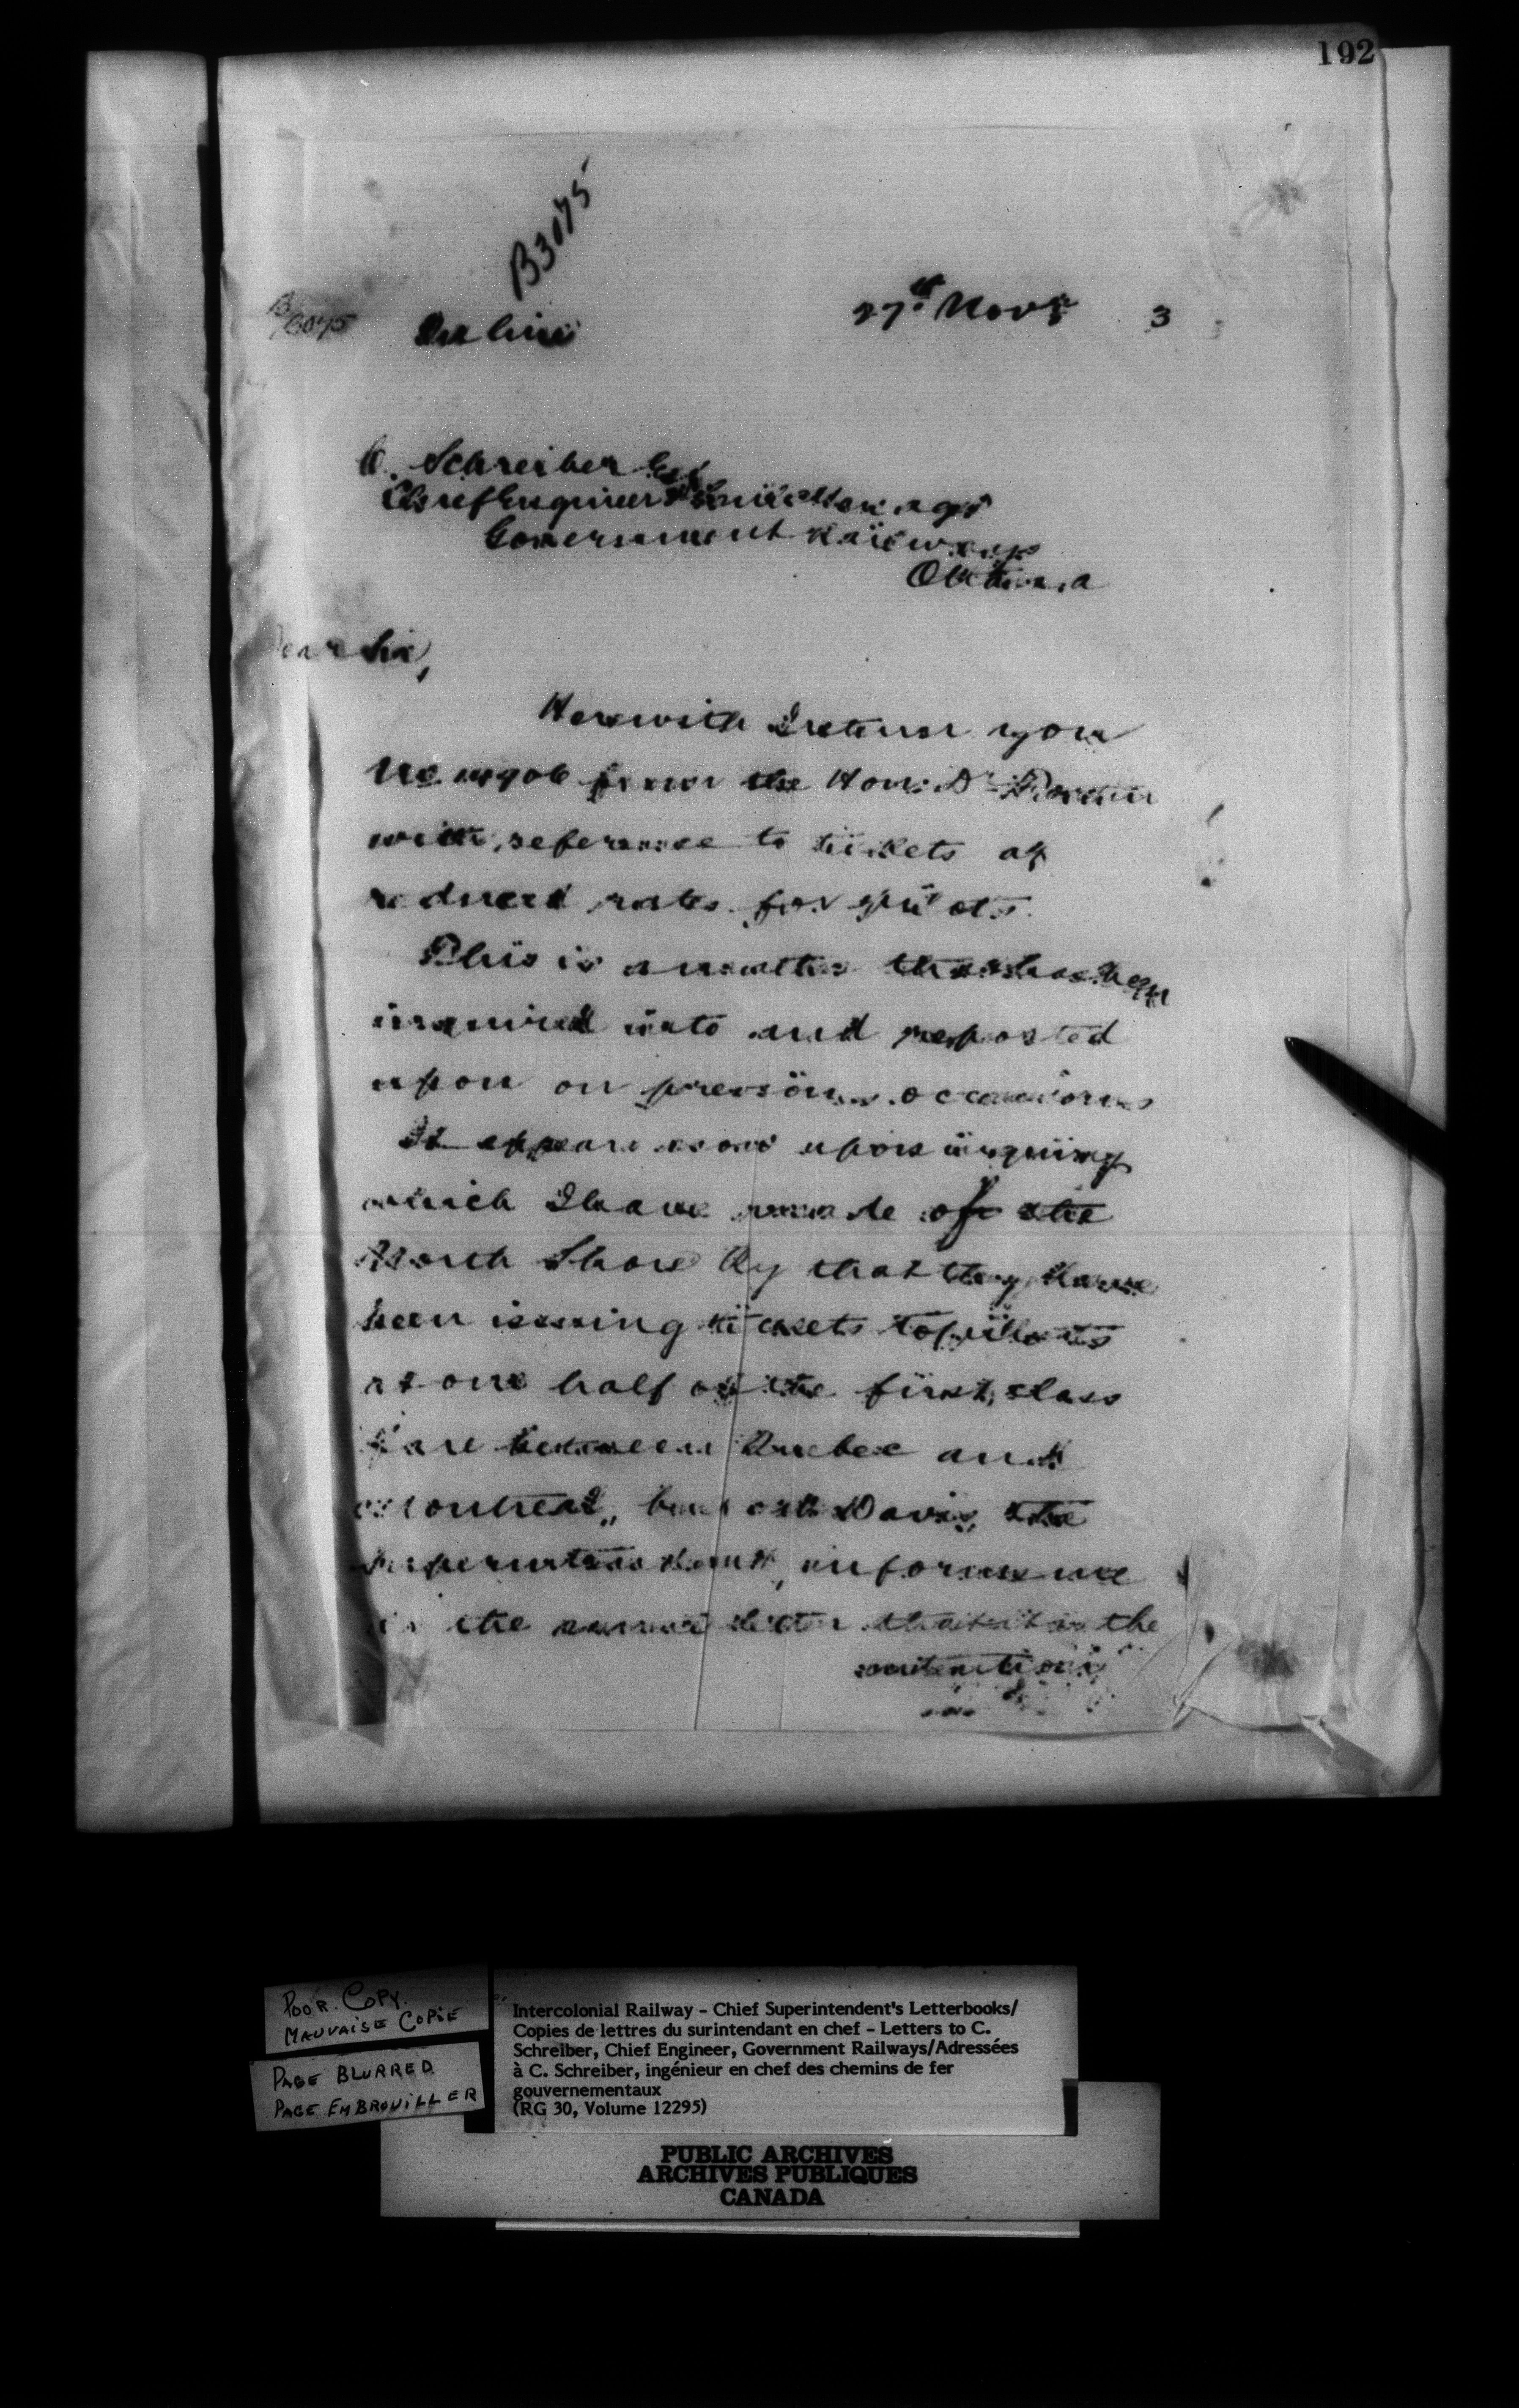 192
B3075
B/3075
27th Novr 3
C. Schreiber Esq
Chief Engineer & Genl Manager
Government Railways
Ottawa
Dear Sir,
Herewith I return you
from the Hon: Dr
with reference to tickets at
reduced rates for pilots.
This is a matter that has been
inquired into and reported
upon on previous occasions
It appears upon inquiry
which I have made of the
North Shore Ry that they have
been issuing tickets to pilots
at one half of the first class
fare between Quebec and
Montreal, but Mr Davis, the
Superintendent, informs me
in the same letter that it is the
intention
Poor Copy.
Mauvaise Copie
Page Blurred
Page Embrouiller
Intercolonial Railway - Chief Superintendent's Letterbooks/
Copies de lettres du surintendant en chef - Letters to C.
Schreiber, Chief Engineer, Government Railways/Adressées
à C. Schreiber, ingénieur en chef des chemins de fer
gouvernementaux
(RG 30, Volume 12295)
PUBLIC ARCHIVES
ARCHIVES PUBLIQUES
CANADA